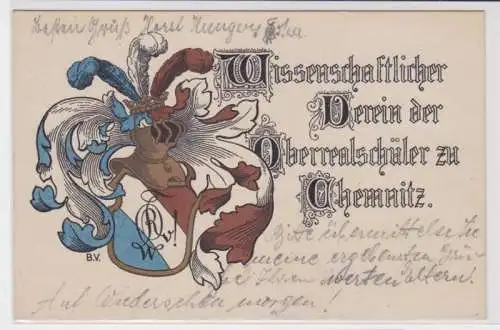 Besten Gruß Horst Hunger
Wissenschaftlicher
Verein der
Oberrealschüler zu
Chemnitz.
B.V.
Bitte übermitteln Sie
meine ergebensten
Ihren werten Eltern.
Auf Wiedersehen morgen!